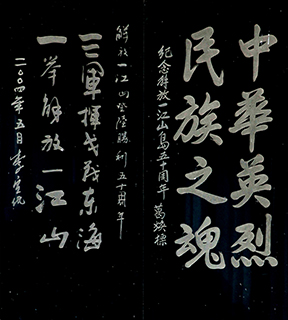 中華英烈
民族之魂
紀念解放一江山島五十周年 葛焕標
解放一江山登陸勝利五十周年
三軍揮戈戰东海
一举解放一江山
二〇〇四年五月